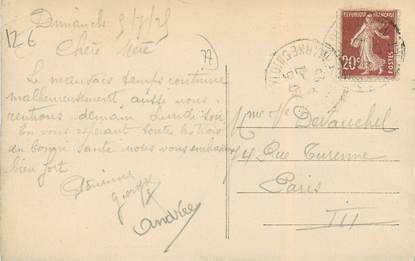 Dimanche 5/7/25
126
77
Chère Mère
Le mauvais temps continue
malheureusement aussi nous
rentrons demain Lundi soir
En vous espérant toutes les trois
en bonne santé nous vous embrassons
bien fort
Georges
Andrée
REPUBLIQUE FRANÇAISE
20c
POSTES
Mme Vve Devauchel
14 Rue Turenne
Paris
III